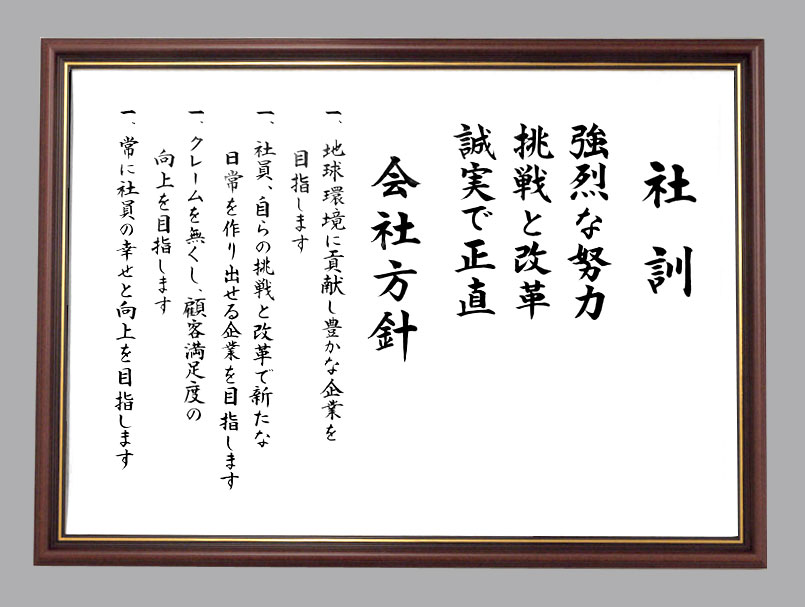 社訓
強烈な努力
挑戦と改革
誠実で正直
会社方針
一、地球環境に貢献し豊かな企業を
目指します
一、社員、自らの挑戦と改革で新たな
日常を作り出せる企業を目指します
一、クレームを無くし、顧客満足度の
向上を目指します
一、常に社員の幸せと向上を目指します